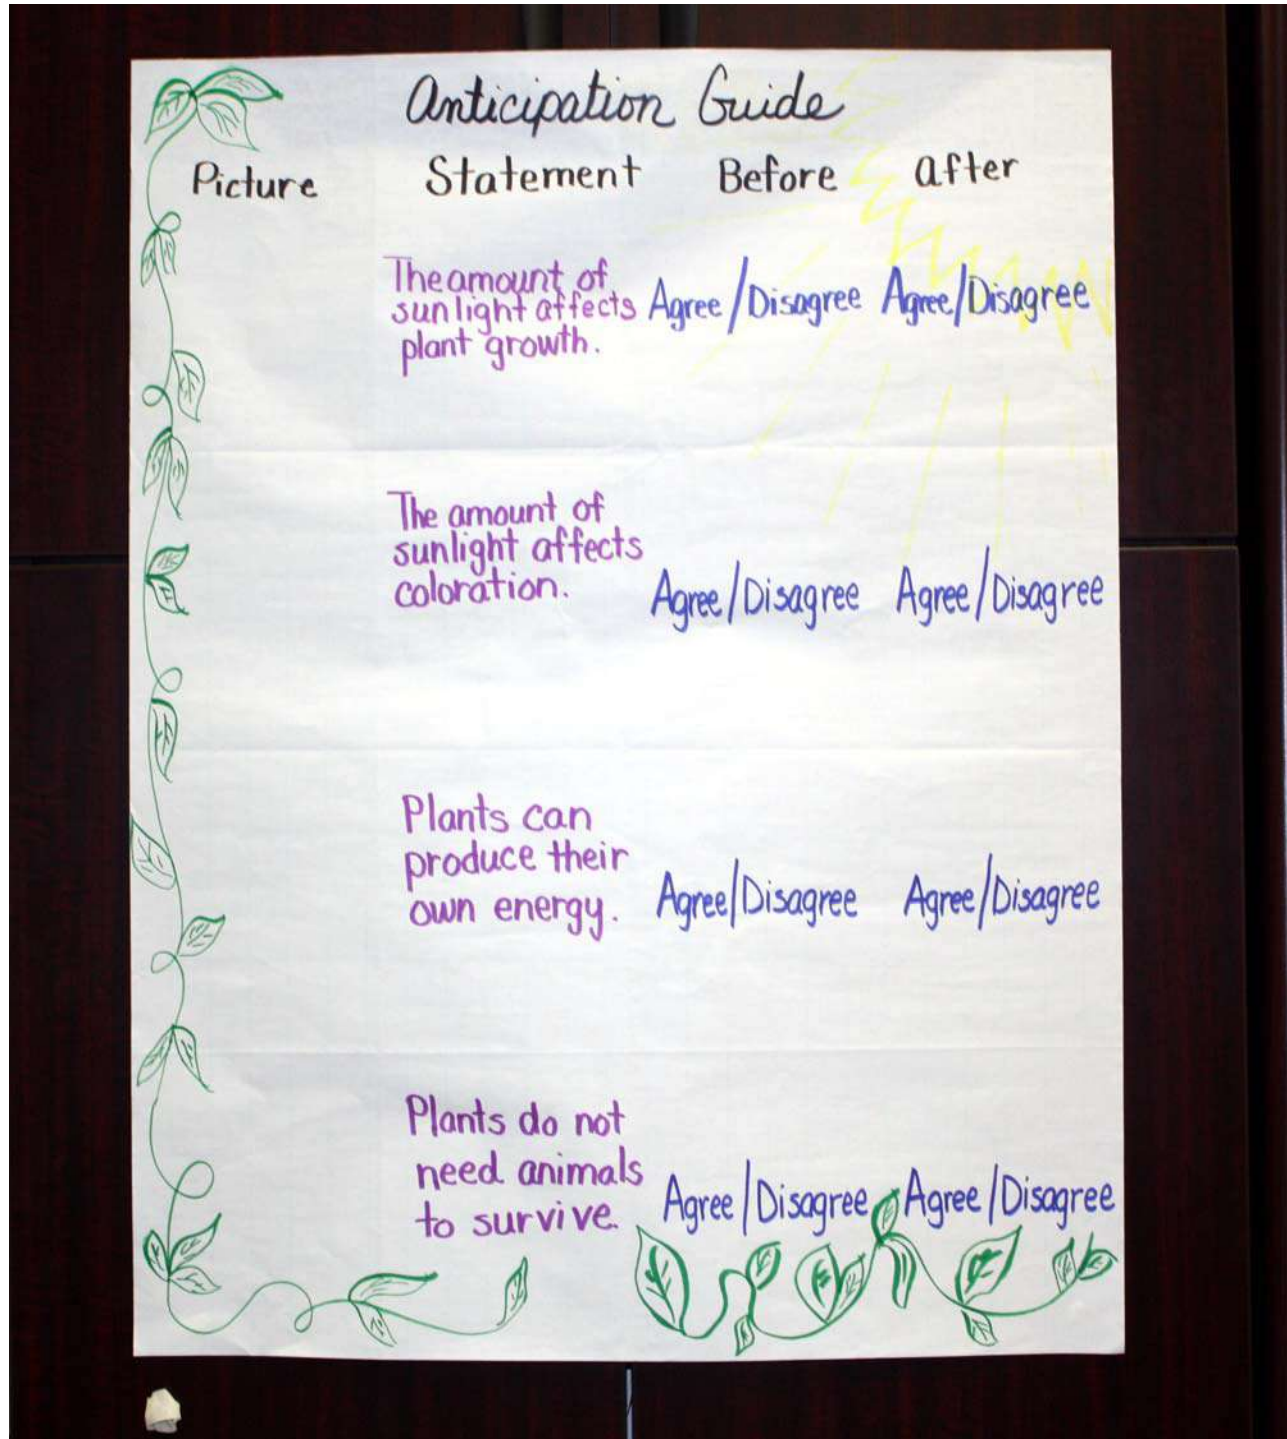 Anticipation Guide
Picture Statement Before After
The amount of
sunlight affects
plant growth.
Agree/Disagree Agree/Disagree
The amount of
sunlight affects
coloration.
Agree/Disagree Agree/Disagree
Plants can
produce their
own energy.
Agree/Disagree Agree/Disagree
Plants do not
need animals
to survive.
Agree/Disagree Agree/Disagree